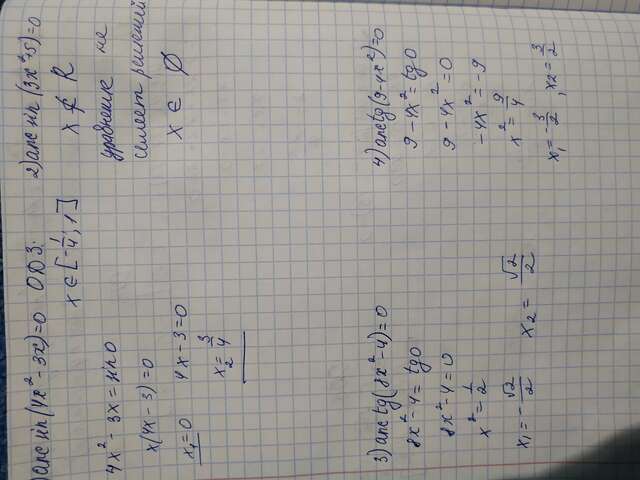 1) arc sin (4x² - 3x) = 0 ОДЗ:
x ∈ [-1/4; 1]
4x² - 3x = sin 0
x(4x - 3) = 0
x₁ = 0 4x - 3 = 0
x₂ = 3/4
2) arc sin (3x² + 5) = 0
x ∉ R
уравнение не
имеет решений
x ∈ ∅
3) arc tg (8x² - 4) = 0
8x² - 4 = tg 0
8x² - 4 = 0
x² = 1/2
x₁ = -√2/2 x₂ = √2/2
4) arctg (9 - 4x²) = 0
9 - 4x² = tg 0
9 - 4x² = 0
-4x² = -9
x² = 9/4
x₁ = -3/2, x₂ = 3/2